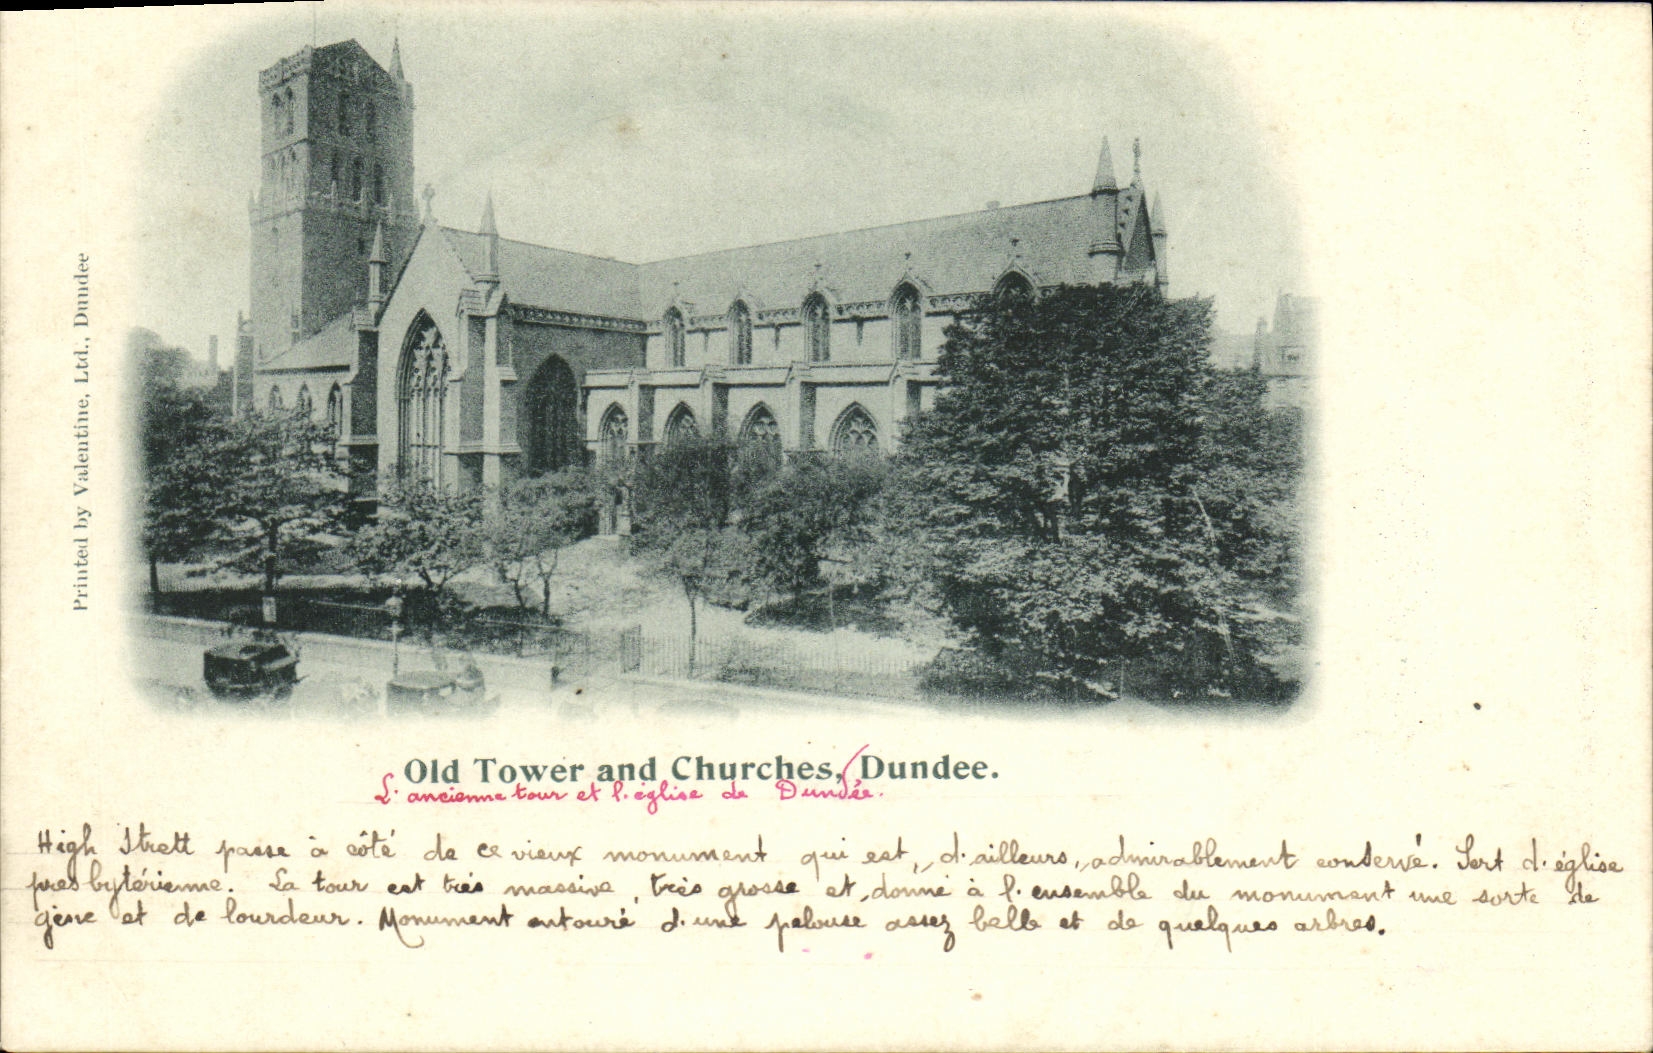 Printed by Valentine, Ltd., Dundee
Old Tower and Churches, Dundee.
L'ancienne tour et l'église de Dundée.
High Strett passe à côté de ce vieux monument qui est, d'ailleurs, admirablement conservé. Sert d'église
presbytérienne. La tour est très massive, très grosse et donne à l'ensemble du monument une sorte de
gène et de lourdeur. Monument entouré d'une pelouse assez belle et de quelques arbres.